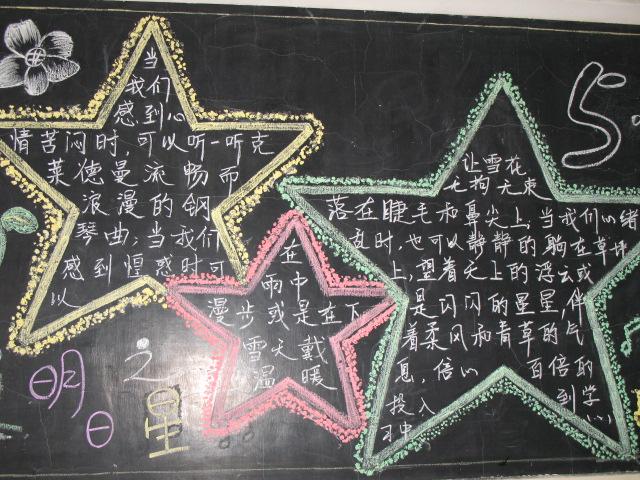 当
我们
感到心
情苦闷时,可以听一听克
莱德曼流畅而
浪漫的钢
琴曲;当我们
感到惶惑时可
以
在
雨中
漫步或是在下
雪天戴
温暖
让雪花
无拘无束
落在睫毛和鼻尖上;当我们心绪
乱时,也可以静静的躺在草坪
上,望着天上的浮云或
是闪闪的星星,伴
着柔风和青草的气
息,信心百倍的
投入到学
习中
明日之星